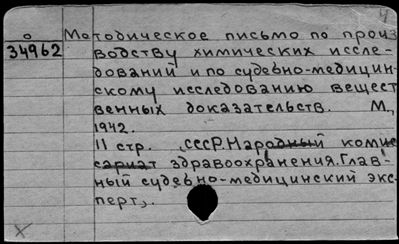 4
о Методическое письмо по произ
34962 водству химических иссле-
дований и по судебно-медицин-
скому исследованию вещест
венных доказательств. М.,
1942.
11 стр. СССР. Народный комис
сариат здравоохранения. Глав-
ный судебно-медицинский экс-
перт,.